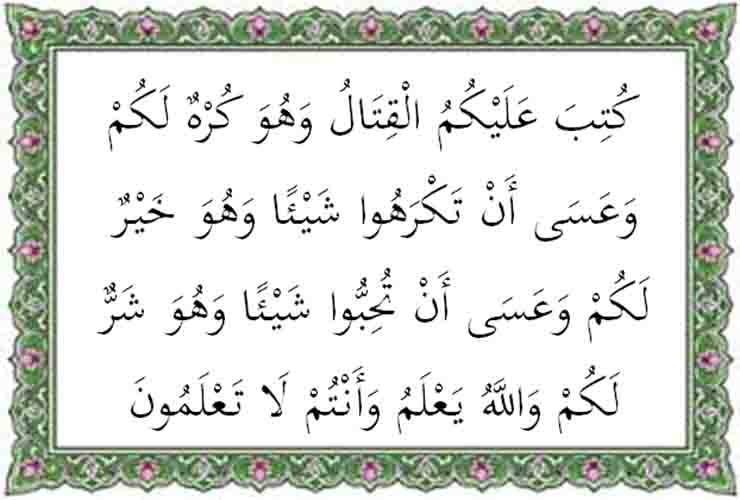 كُتِبَ عَلَيْكُمُ الْقِتَالُ وَهُوَ كُرْهٌ لَكُمْ
وَعَسَى أَنْ تَكْرَهُوا شَيْئًا وَهُوَ خَيْرٌ
لَكُمْ وَعَسَى أَنْ تُحِبُّوا شَيْئًا وَهُوَ شَرٌّ
لَكُمْ وَاللَّهُ يَعْلَمُ وَأَنْتُمْ لَا تَعْلَمُونَ